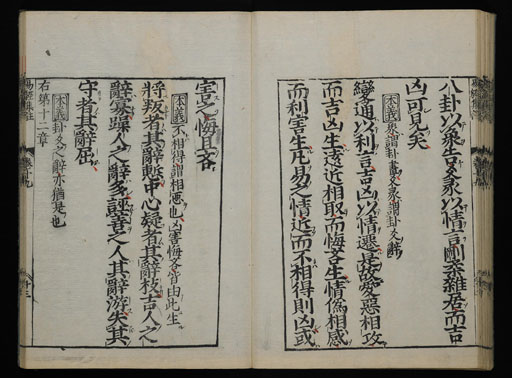 八卦以象告爻彖以情言剛柔雜居而吉
凶可見矣
本義象謂卦畫爻彖謂卦爻辭
變通以利言吉凶以情遷是故愛惡相攻
而吉凶生遠近相取而悔吝生情偽相感
而利害生凡易之情近而不相得則凶或
害之悔且吝
本義不相得謂相惡也凶害悔吝皆由此生
將叛者其辭慙中心疑者其辭枝吉人之
辭寡躁人之辭多誣善之人其辭游失其
守者其辭屈
本義卦爻之辭亦猶是也
右第十二章